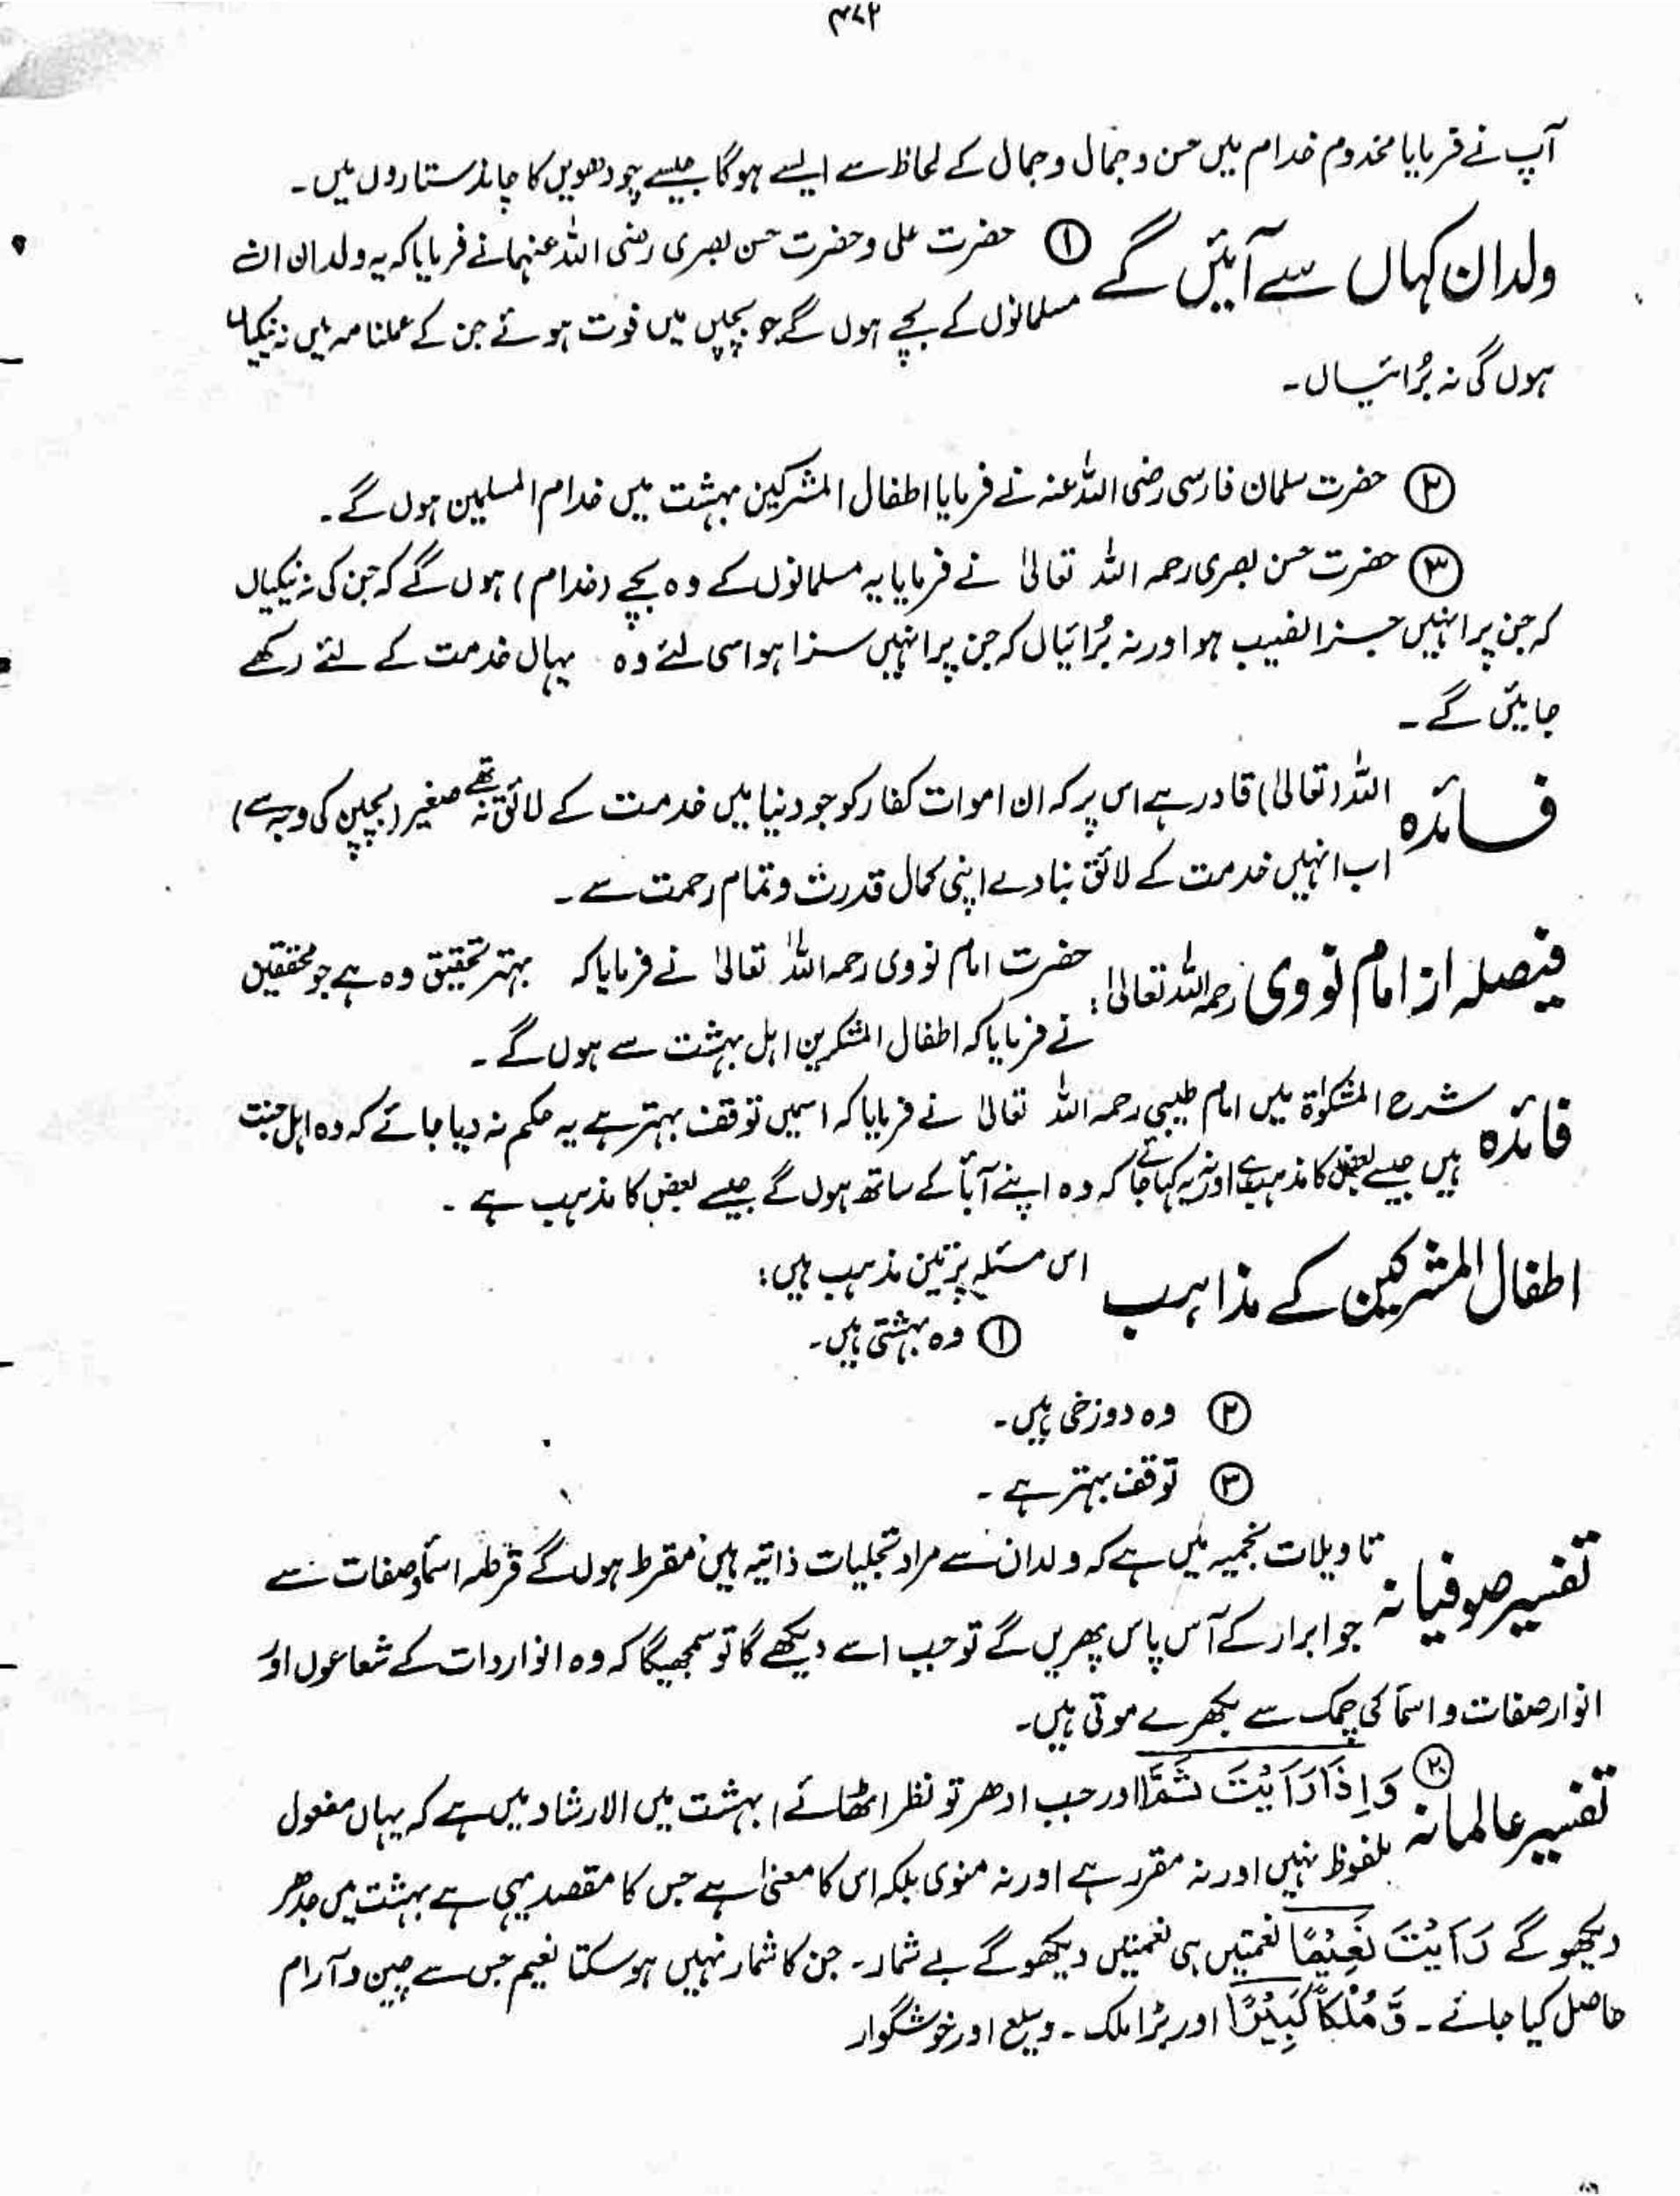 ۴۷۲
آپ نے فرمایا مخدوم خدام میں حسن و جمال و جمال کے لحاظ سے ایسے ہوگا جیسے چودھویں کا چاند ستاروں میں۔
ولدان کہاں سے آئیں گے ① حضرت علی و حضرت حسن بصری رضی اللہ عنہما نے فرمایا کہ یہ ولدان ان
مسلمانوں کے بچے ہوں گے جو بچپن میں فوت ہوئے جن کے عملنامہ میں نہ نیکیاں
ہوں گی نہ بُرائیاں۔
② حضرت سلمان فارسی رضی اللہ عنہ نے فرمایا اطفال المشرکین بہشت میں خدام المسلمین ہوں گے۔
③ حضرت حسن بصری رحمہ اللہ تعالیٰ نے فرمایا یہ مسلمانوں کے وہ بچے (خدام) ہوں گے کہ جن کی نہ نیکیاں
کہ جن پر انہیں جزا نصیب ہو اور نہ بُرائیاں کہ جن پر انہیں سزا ہو اسی لئے وہ یہاں خدمت کے لئے رکھے
جائیں گے۔
فائدہ اللہ (تعالیٰ) قادر ہے اس پر کہ ان اموات کفار کو جو دنیا میں خدمت کے لائق نہ تھے صغیر (بچپن کی وجہ سے)
اب انہیں خدمت کے لائق بنا دے اپنی کمال قدرت و تمام رحمت سے۔
فیصلہ از امام نووی رحمہ اللہ تعالیٰ: حضرت امام نووی رحمہ اللہ تعالیٰ نے فرمایا کہ بہتر تحقیق وہ ہے جو محققین
نے فرمایا کہ اطفال المشرکین اہل بہشت سے ہوں گے۔
فائدہ شرح المشکوٰۃ میں امام طیبی رحمہ اللہ تعالیٰ نے فرمایا کہ اسمیں توقف بہتر ہے یہ حکم نہ دیا جائے کہ وہ اہل جنت
ہیں جیسے بعض کا مذہب ہے اور نہ یہ کہا جائے کہ وہ اپنے آبأ کے ساتھ ہوں گے جیسے بعض کا مذہب ہے۔
اطفال المشرکین کے مذاہب اس مسئلہ پر تین مذہب ہیں:
① وہ بہشتی ہیں۔
② وہ دوزخی ہیں۔
③ توقف بہتر ہے۔
تفسیر صوفیانہ تاویلات نجمیہ میں ہے کہ ولدان سے مراد تجلیات ذاتیہ ہیں مقرط ہوں گے قرطہ اسمأ و صفات سے
جو ابرار کے آس پاس پھریں گے تو جب اسے دیکھے گا تو سمجھیگا کہ وہ انوار ذات کے شعاعوں اور
انوار صفات و اسمأ کی چمک سے بکھرے موتی ہیں۔
تفسیر عالمانہ ⑳ وَاِذَا رَاَیْتَ ثَمَّ اور جب ادھر تو نظر اٹھائے) بہشت میں الارشاد میں ہے کہ یہاں مفعول
ملفوظ نہیں اور نہ مقدر ہے اور نہ منوی بلکہ اس کا معنیٰ ہے جس کا مقصد یہی ہے بہشت میں جدھر
دیکھو گے رَاَیْتَ نَعِیْمًا نعمتیں ہی نعمتیں دیکھو گے بے شمار۔ جن کا شمار نہیں ہو سکتا نعیم جس سے چین و آرام
حاصل کیا جائے۔ وَّ مُلْکًا کَبِیْرًا اور بڑا ملک۔ وسیع اور خوشگوار